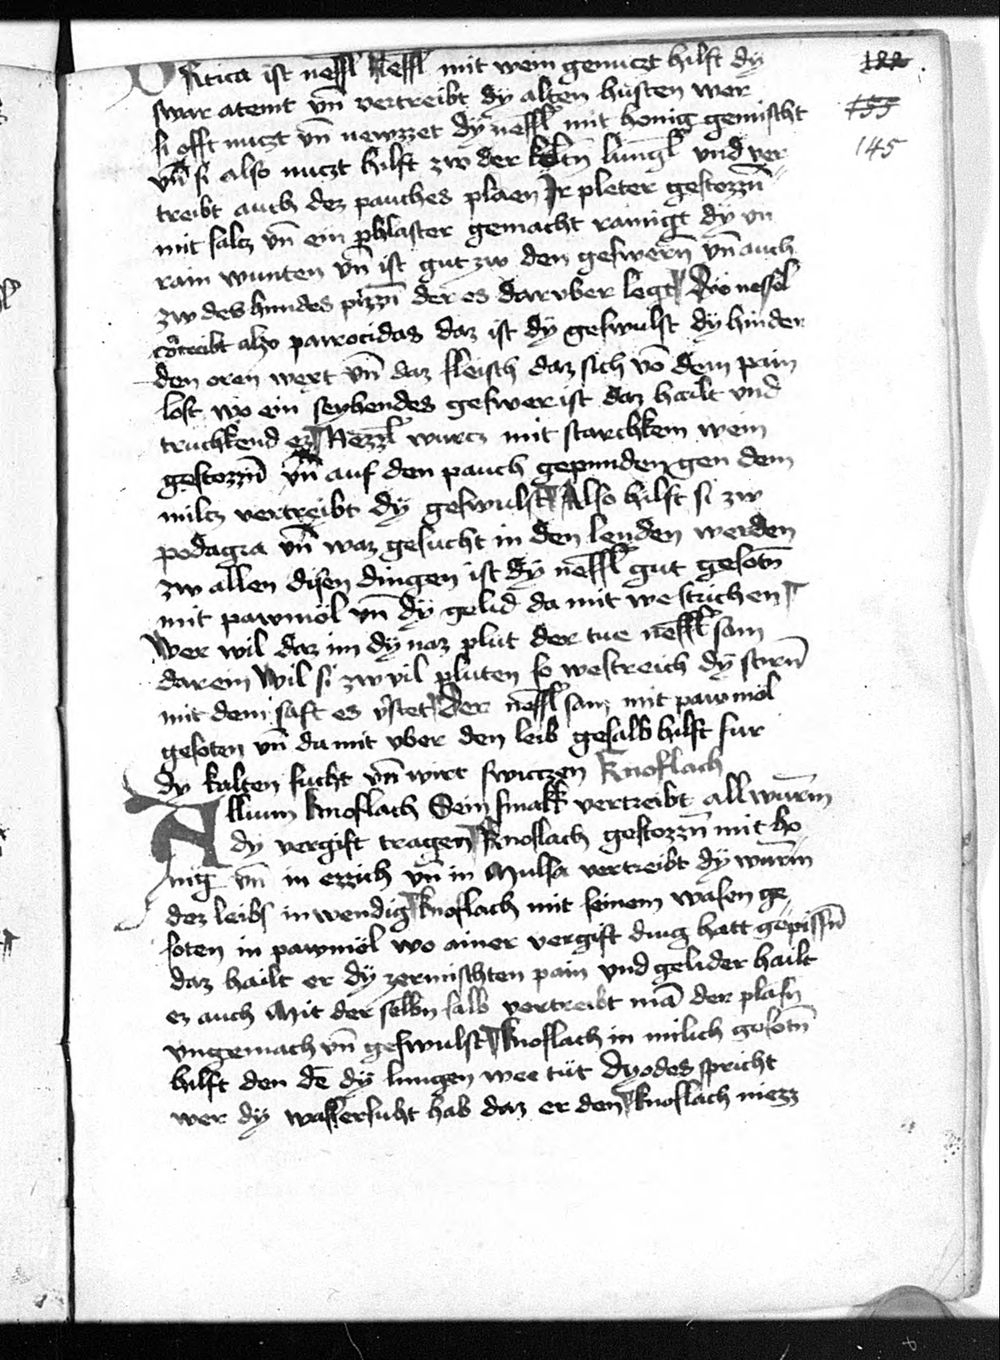 Urtica ist nessl Nessl mit wein genuczt hilft dy
swar atemt vn̄ vertreibt dy alten husten wer
si offt nuczt vn̄ newzzet dy nessl mit honig gemischt
vn̄ si also nuczt hilft zw der kaltn̄ lungl vnd ver
treibt auch dez pauches plaen Jr pleter gestozzn̄
mit salcz vn̄ ein phlaster gemacht rainigt dy vn
rain wunten vn̄ ist gut zw den geswern̄ vn̄ auch
zw des hundes pizzn̄ der es daruber legt Dye nessel
vertreibt also parrotidas daz ist dy geswulst dy hinder
den oren wext vn̄ daz fleisch daz sich vō dem pain
lost wo ein seyhendes geswer ist daz hailt vnd
truchkend ez Nezzl wurcz mit starchkem wein
gestozzn̄ vn̄ auf den pauch gepunden gen dem
milcz vertreibt dy geswulst Also hilft si zw
podagra vn̄ waz gesucht in den lenden werden
zw allen disen dingen ist dy nessl gut gesotn̄
mit pawmöl vn̄ dy gelid da mit westrichen
Wer wil daz im dy naz plut der tue nessl sam
darein Wil si zw vil pluten so westreich dy stirn̄
mit dem saft es vstet Der nessl sam mit pawmöl
gesoten vn̄ da mit vber den leib gesalb hilft fur
dy kalten sucht vn̄ wirt swiczen Knoflach
Allium knoflach Sein smakk vertreibt all wurm̄
dy vergift tragen Knoflach gestozzn̄ mit ho
nig vn̄ in ezzich vn̄ in Mulsa vertreibt dy wurm̄
dez leibs inwendig knoflach mit seinem wasen ge
soten in pawmöl wo ainer vergift ding hatt gepissn̄
daz hailt er dy zermischten pain vnd gelider hailt
ez auch Mit der selbn salb vertreibt mā der plasn̄
vngemach vn̄ geswulst knoflach in milich gesotn̄
hilft den dē dy lungen wee tüt Dyodes spricht
wer dy wassersuht hab daz er den knoflach niezz
122
155
145